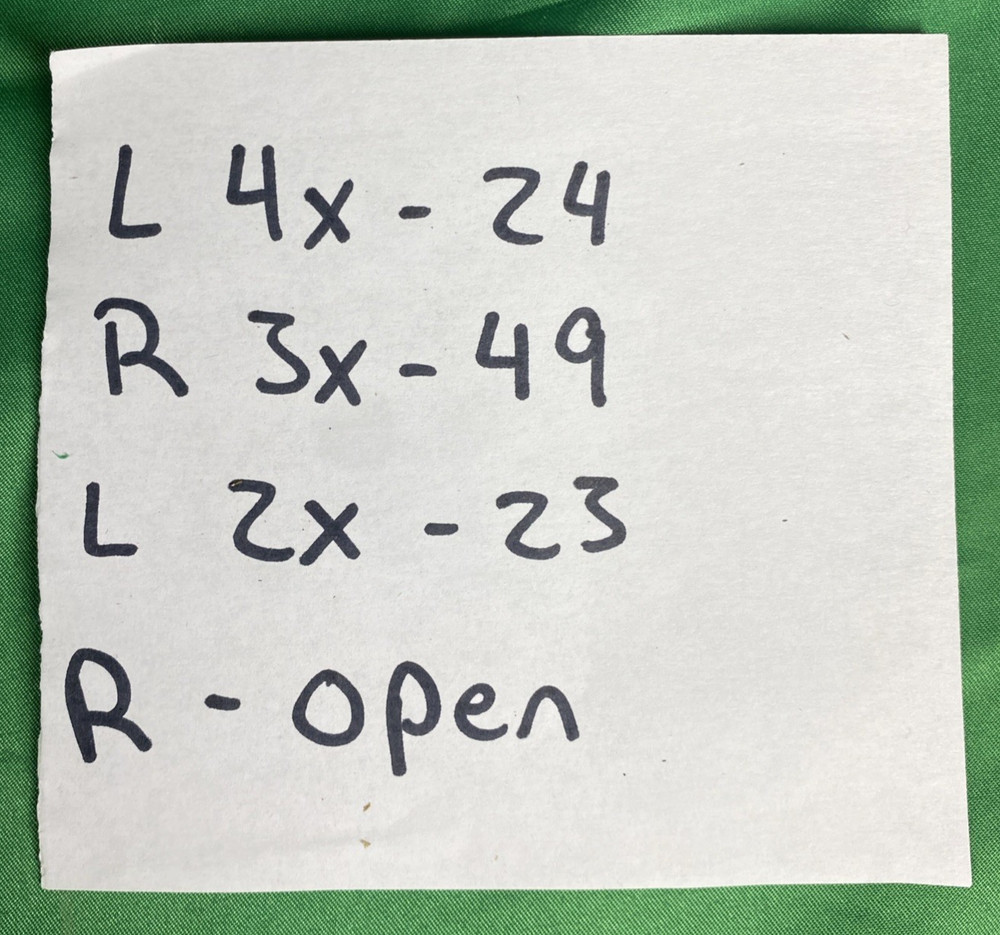 L 4x - 24
R 3x - 49
L 2x - 23
R - open